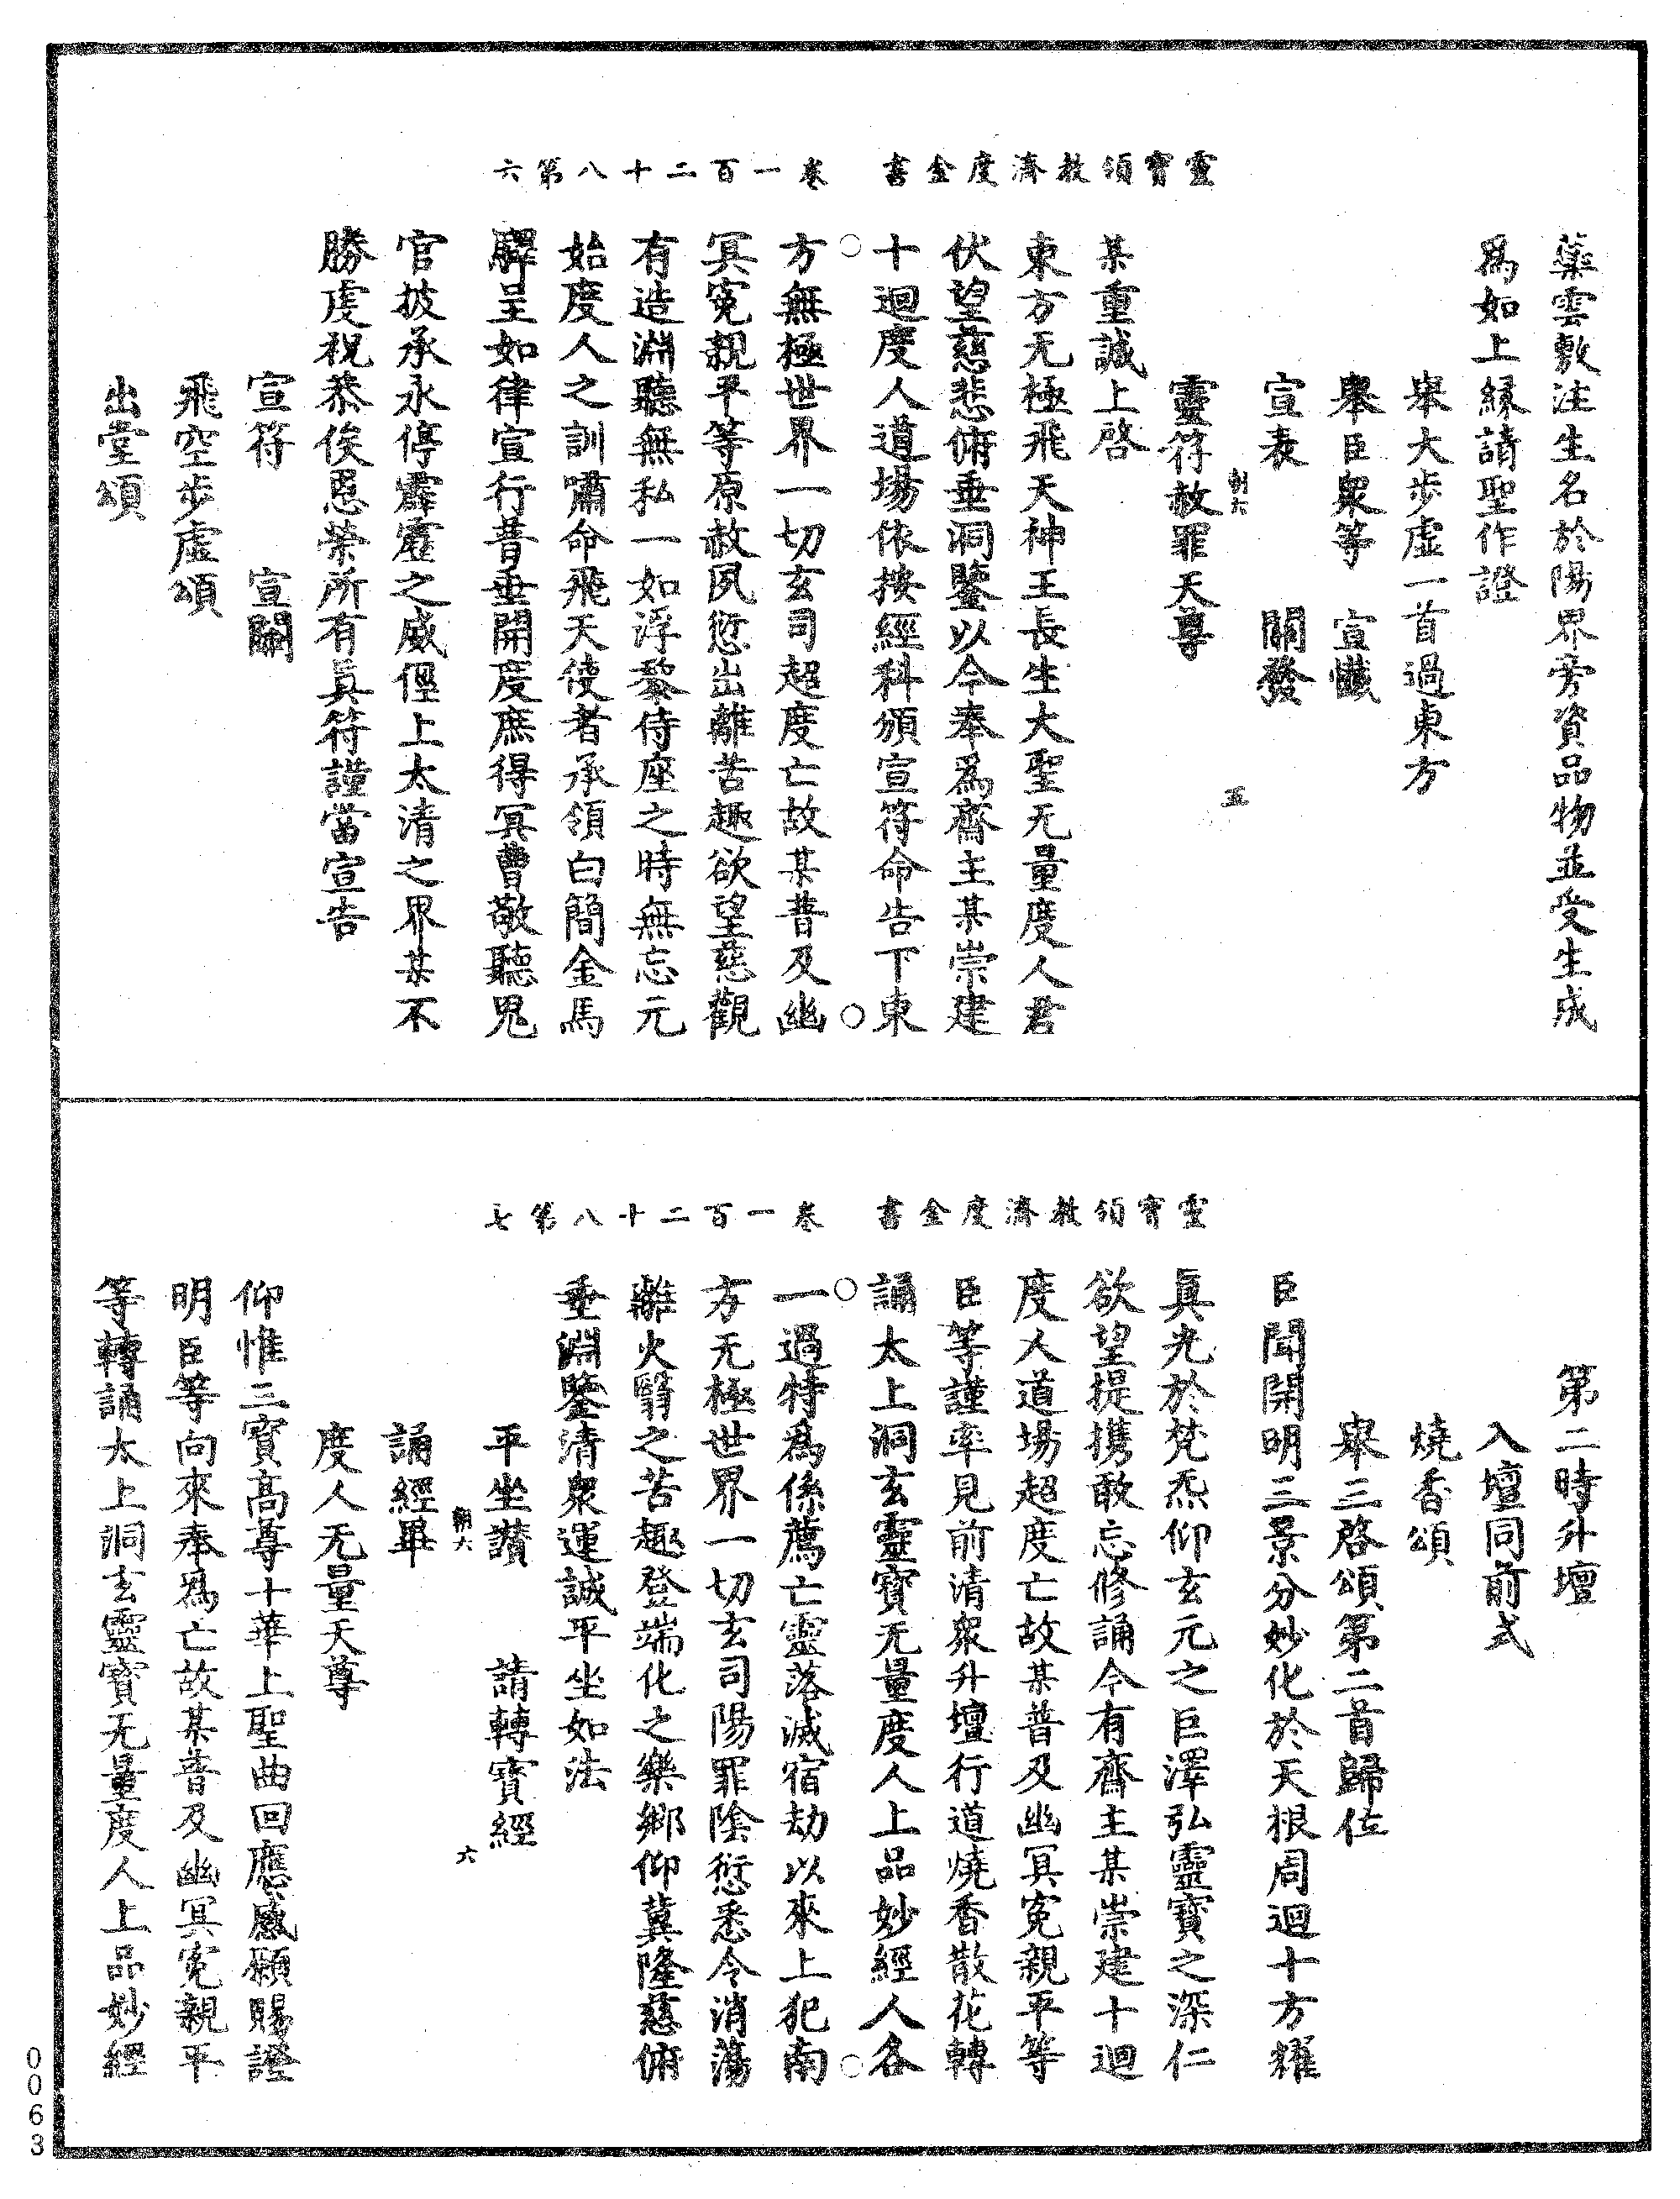 靈寶領教濟度金書　卷一百二十八第六
藥雲敷注生名於陽界旁資品物並受生成
爲如上縁請聖作證
舉大步虛一首過東方
舉臣衆等　宣懺
宣表　關發
五
靈符赦罪天尊
某重誠上啓
東方无極飛天神王長生大聖无量度人君
伏望慈悲俯垂洞鑒以今奉爲齋主某崇建
十迴度人道場依按經科頒宣符命告下東
方無極世界一切玄司超度亡故某普及幽
冥寃親平等原赦夙愆出離苦趣欲望慈觀
有造淵聽無私一如浮黎侍座之時無忘元
始度人之訓嘯命飛天使者承領白簡金馬
驛呈如律宣行普垂開度庶得冥曹敬聽鬼
官披承永停霹靂之威徑上太清之界某不
勝虔祝恭俟恩榮所有眞符謹當宣告
宣符　宣關
飛空步虛頌
出堂頌
靈寶領教濟度金書　卷一百二十八第七
第二時升壇
入壇同前式
燒香頌
舉三啓頌第二首歸位
臣聞開明三景分妙化於天根周迴十方耀
眞光於梵炁仰玄元之巨澤弘靈寶之深仁
欲望提携敢忘修誦今有齋主某崇建十迴
度人道場超度亡故某普及幽冥寃親平等
臣等謹率見前清衆升壇行道燒香散花轉
誦太上洞玄靈寶无量度人上品妙經人各
一過特爲係薦亡靈落滅宿劫以來上犯南
方无極世界一切玄司陽罪陰愆悉令消蕩
離火翳之苦趣登端化之樂鄉仰冀隆慈俯
垂淵鑒清衆運誠平坐如法
平坐讃　請轉寶經
六
誦經畢
度人无量天尊
仰惟三寶高尊十華上聖曲回應感願賜證
明臣等向來奉爲亡故某普及幽冥寃親平
等轉誦太上洞玄靈寶无量度人上品妙經
0063